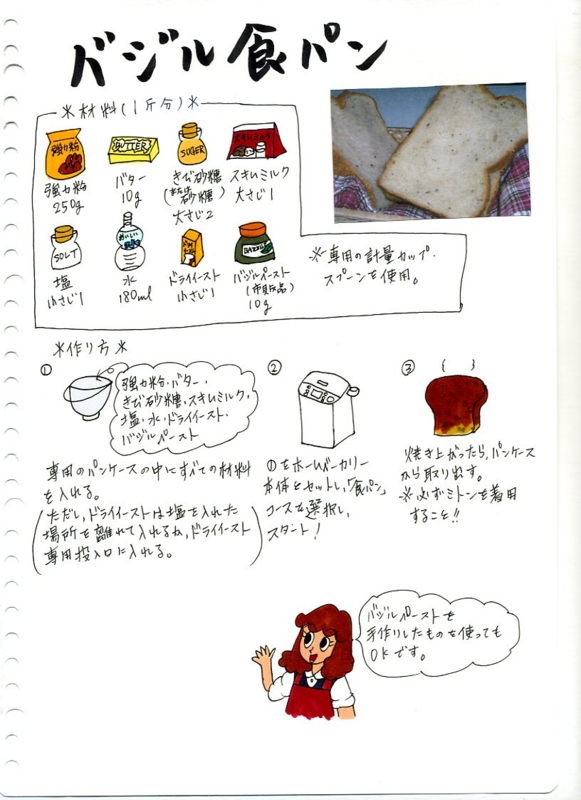 バジル食パン
＊材料(1斤分)＊
強力粉
BUTTER
SUGER
スキムミルク
強力粉
250g
バター
10g
きび砂糖
(または砂糖)
大さじ2
スキムミルク
大さじ1
SOLT
おいしい
水
塩
小さじ1
水
180ml
ドライイースト
小さじ1
バジルペースト
(市販品)
10g
※専用の計量カップ・
スプーンを使用。
＊作り方＊
①
強力粉・バター・
きび砂糖・スキムミルク・
塩・水・ドライイースト・
バジルペースト
専用のパンケースの中にすべての材料
を入れる。
(ただし、ドライイーストは塩を入れた
場所を離れて入れるか、ドライイースト
専用投入口に入れる。)
②
①をホームベーカリー
本体にセットし、「食パン」
コースを選択し、
スタート!
③
焼き上がったら、パンケース
から取り出す。
※必ずミトンを着用
すること!!
バジルペーストを
手作りしたものを使っても
OKです。